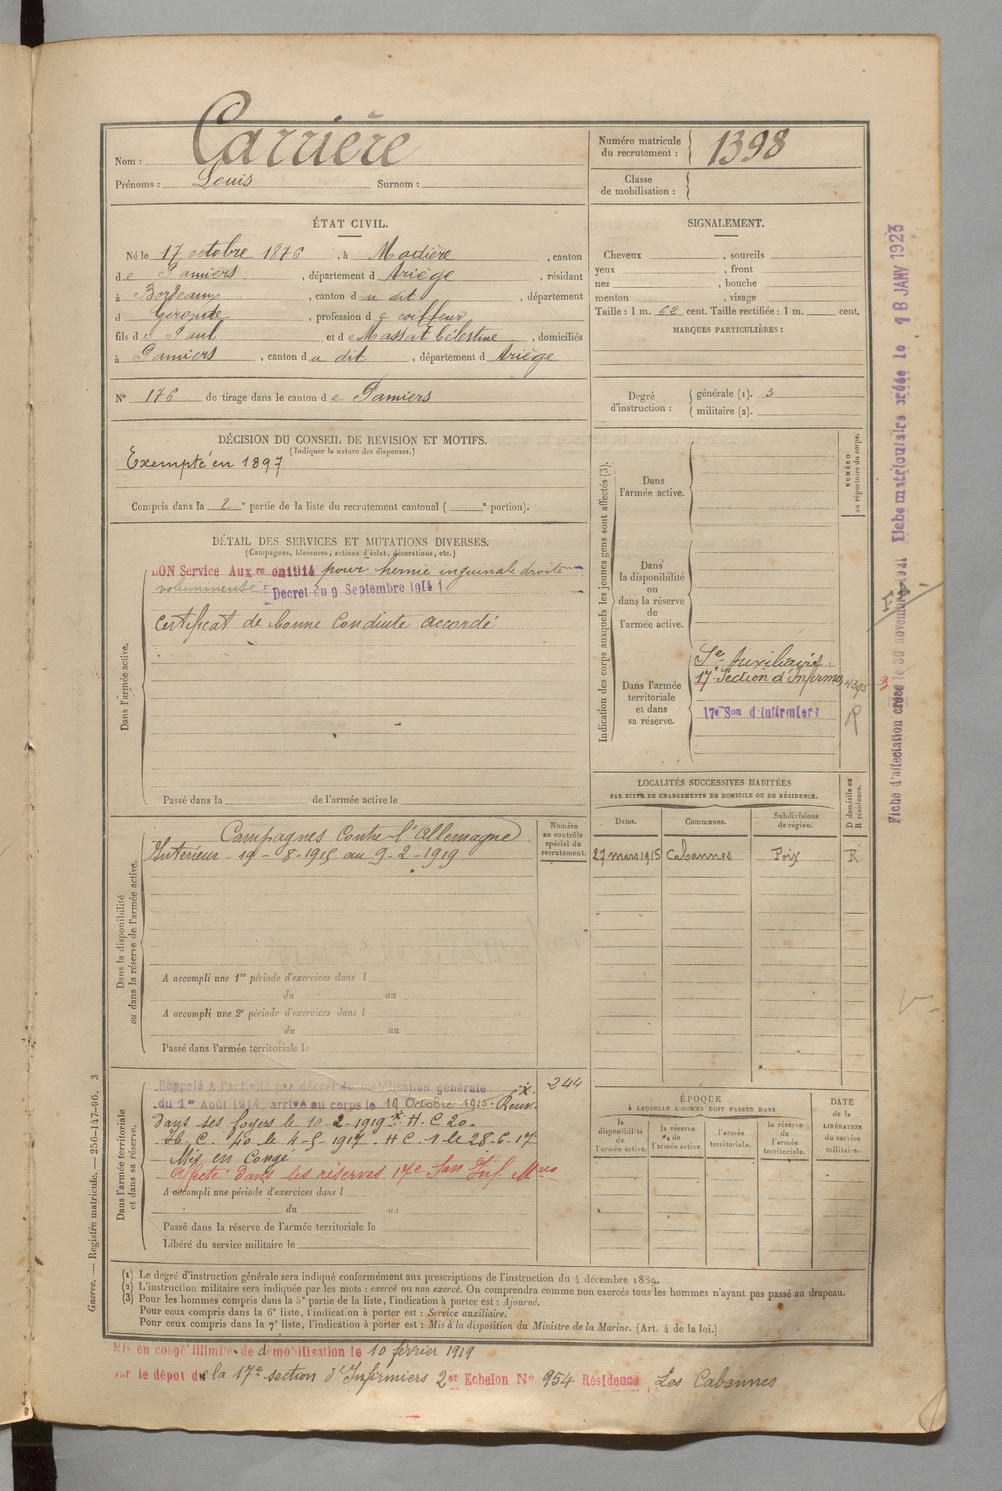 Nom : Carrière
Prénoms : Louis Surnom :
Numéro matricule du recrutement : 1398
Classe de mobilisation :
ÉTAT CIVIL.
Né le 17 octobre 1876, à Madière, canton
de Pamiers, département d Ariège, résidant
à Bordeaux, canton du dit, département
d Gironde, profession de coiffeur
fils de Paul et de Massat Célestine, domiciliés
à Pamiers, canton du dit, département d Ariège
N° 176 de tirage dans le canton de Pamiers
SIGNALEMENT.
Cheveux , sourcils
yeux , front
nez , bouche
menton , visage
Taille : 1 m. 62 cent. Taille rectifiée : 1 m. cent.
MARQUES PARTICULIÈRES :
Degré d'instruction :
générale (1). 3
militaire (2).
DÉCISION DU CONSEIL DE REVISION ET MOTIFS.
(Indiquer la nature des dispenses.)
Exempté en 1897
Compris dans la 2e partie de la liste du recrutement cantonal ( e portion).
DÉTAIL DES SERVICES ET MUTATIONS DIVERSES.
(Campagnes, blessures, actions d'éclat, décorations, etc.)
Dans l'armée active.
BON Service Auxre en 1914 pour hernie inguinale droite
volumineuse Decret du 9 Septembre 1914
Certificat de bonne Conduite accordé
Passé dans la de l'armée active le
Indication des corps auxquels les jeunes gens sont affectés (3).
NUMÉRO au répertoire du corps.
Dans l'armée active.
Dans la disponibilité ou dans la réserve de l'armée active.
Dans l'armée territoriale et dans sa réserve.
Sce Auxiliaire.
17e Section d'Infirmiers
17e Son d'infirmiers
R
Dans la disponibilité ou dans la réserve de l'armée active.
Campagnes Contre l'Allemagne
Intérieur - 19 - 8 - 1915 au 9 - 2 - 1919
Numéro au contrôle spécial du recrutement.
A accompli une 1re période d'exercices dans l
du au
A accompli une 2e période d'exercices dans l
du au
Passé dans l'armée territoriale le
LOCALITÉS SUCCESSIVES HABITÉES
PAR SUITE DE CHANGEMENTS DE DOMICILE OU DE RÉSIDENCE.
Dates. Communes. Subdivisions de région. D domicile ou R résidence.
27 mars 1915 Cabannes Foix R
Dans l'armée territoriale et dans sa réserve.
Rappelé à l'activité par décret de mobilisation générale 244
du 1er Août 1914, arrivé au corps le 19 Octobre 1915. Renv.
dans ses foyers le 10-2-1919 H.C 20.
H. C. 40 le 4-5-1917. H C 1 le 28-6-17
Mis en Congé
Affecté dans les réserves 17e Son Inf. Mres
A accompli une période d'exercices dans l
du au
Passé dans la réserve de l'armée territoriale le
Libéré du service militaire le
ÉPOQUE
À LAQUELLE L'HOMME DOIT PASSER DANS
la disponibilité de l'armée active. la réserve de l'armée active. l'armée territoriale. la réserve de l'armée territoriale.
DATE de la LIBÉRATION du service militaire.
(1) Le degré d'instruction générale sera indiqué conformément aux prescriptions de l'instruction du 4 décembre 1889.
(2) L'instruction militaire sera indiquée par les mots : exercé ou non exercé. On comprendra comme non exercés tous les hommes n'ayant pas passé au drapeau.
(3) Pour les hommes compris dans la 5e partie de la liste, l'indication à porter est : Ajourné.
Pour ceux compris dans la 6e liste, l'indication à porter est : Service auxiliaire.
Pour ceux compris dans la 7e liste, l'indication à porter est : Mis à la disposition du Ministre de la Marine. (Art. 4 de la loi.)
Mis en congé illimité de démobilisation le 10 février 1919
par le dépot de la 17e section d'Infirmiers 2et Echelon No 954 Résidence Les Cabannes
Guerre. — Registre matricule. — 256-147-96. 3
Fiche d'affectation créée le 30 novembre 1921 Fiche matriculaire créée le 18 JANV 1923